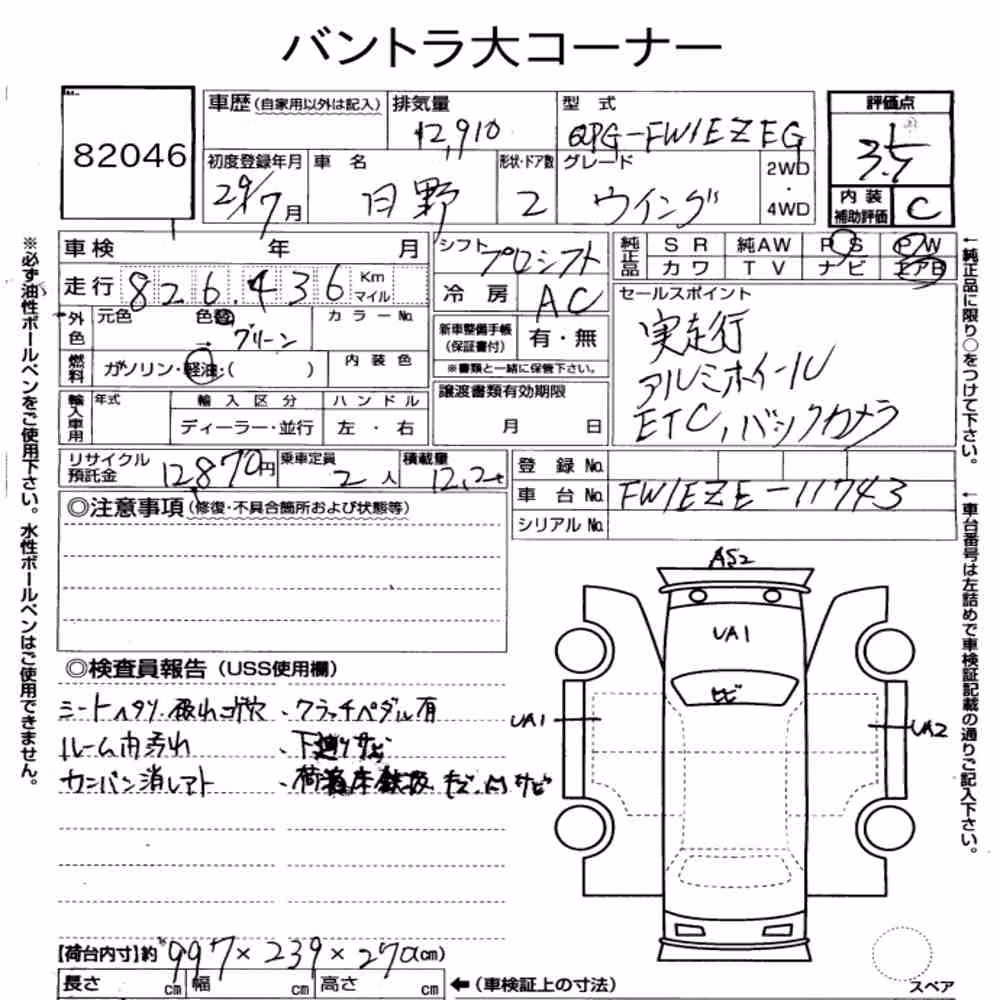 バントラ大コーナー
82046
車歴(自家用以外は記入)
排気量
12,910
型式
QPG-FW1EZEG
評価点
3.5
初度登録年月
29/7月
車名
日野
形状・ドア数
2
グレード
ウイング
2WD
・
4WD
内装
補助評価
C
車検 年 月
走行 826,436 Km
マイル
シフト
プロシフト
冷房
AC
純正品
SR 純AW PS PW
カワ TV ナビ エアB
外色
元色 色替 カラーNo.
→グリーン
新車整備手帳
(保証書付)
有・無
※書類と一緒に保管下さい。
セールスポイント
実走行
アルミホイール
ETC, バックカメラ
燃料
ガソリン・軽油・( )
内装色
輸入車用
年式
輸入区分
ハンドル
ディーラー・並行
左・右
譲渡書類有効期限
月 日
リサイクル
預託金
12,870円
乗車定員
2人
積載量
12.2t
登録No.
車台No.
FW1EZE-11743
シリアルNo.
◎注意事項(修復・不具合箇所および状態等)
◎検査員報告(USS使用欄)
シートヘタリ・破れコゲ穴 ・クラッチペダル有
ルーム内汚れ ・下廻りサビ
カンバン消しアト
AS2
UA1
ヒビ
UA1
UA2
【荷台内寸】約 997×239×270(cm)
長さ cm 幅 cm 高さ cm
←(車検証上の寸法)
スペア
※必ず油性ボールペンをご使用下さい。水性ボールペンはご使用できません。
←純正品に限り○をつけて下さい。
←車台番号は左詰めで車検証記載の通りご記入下さい。